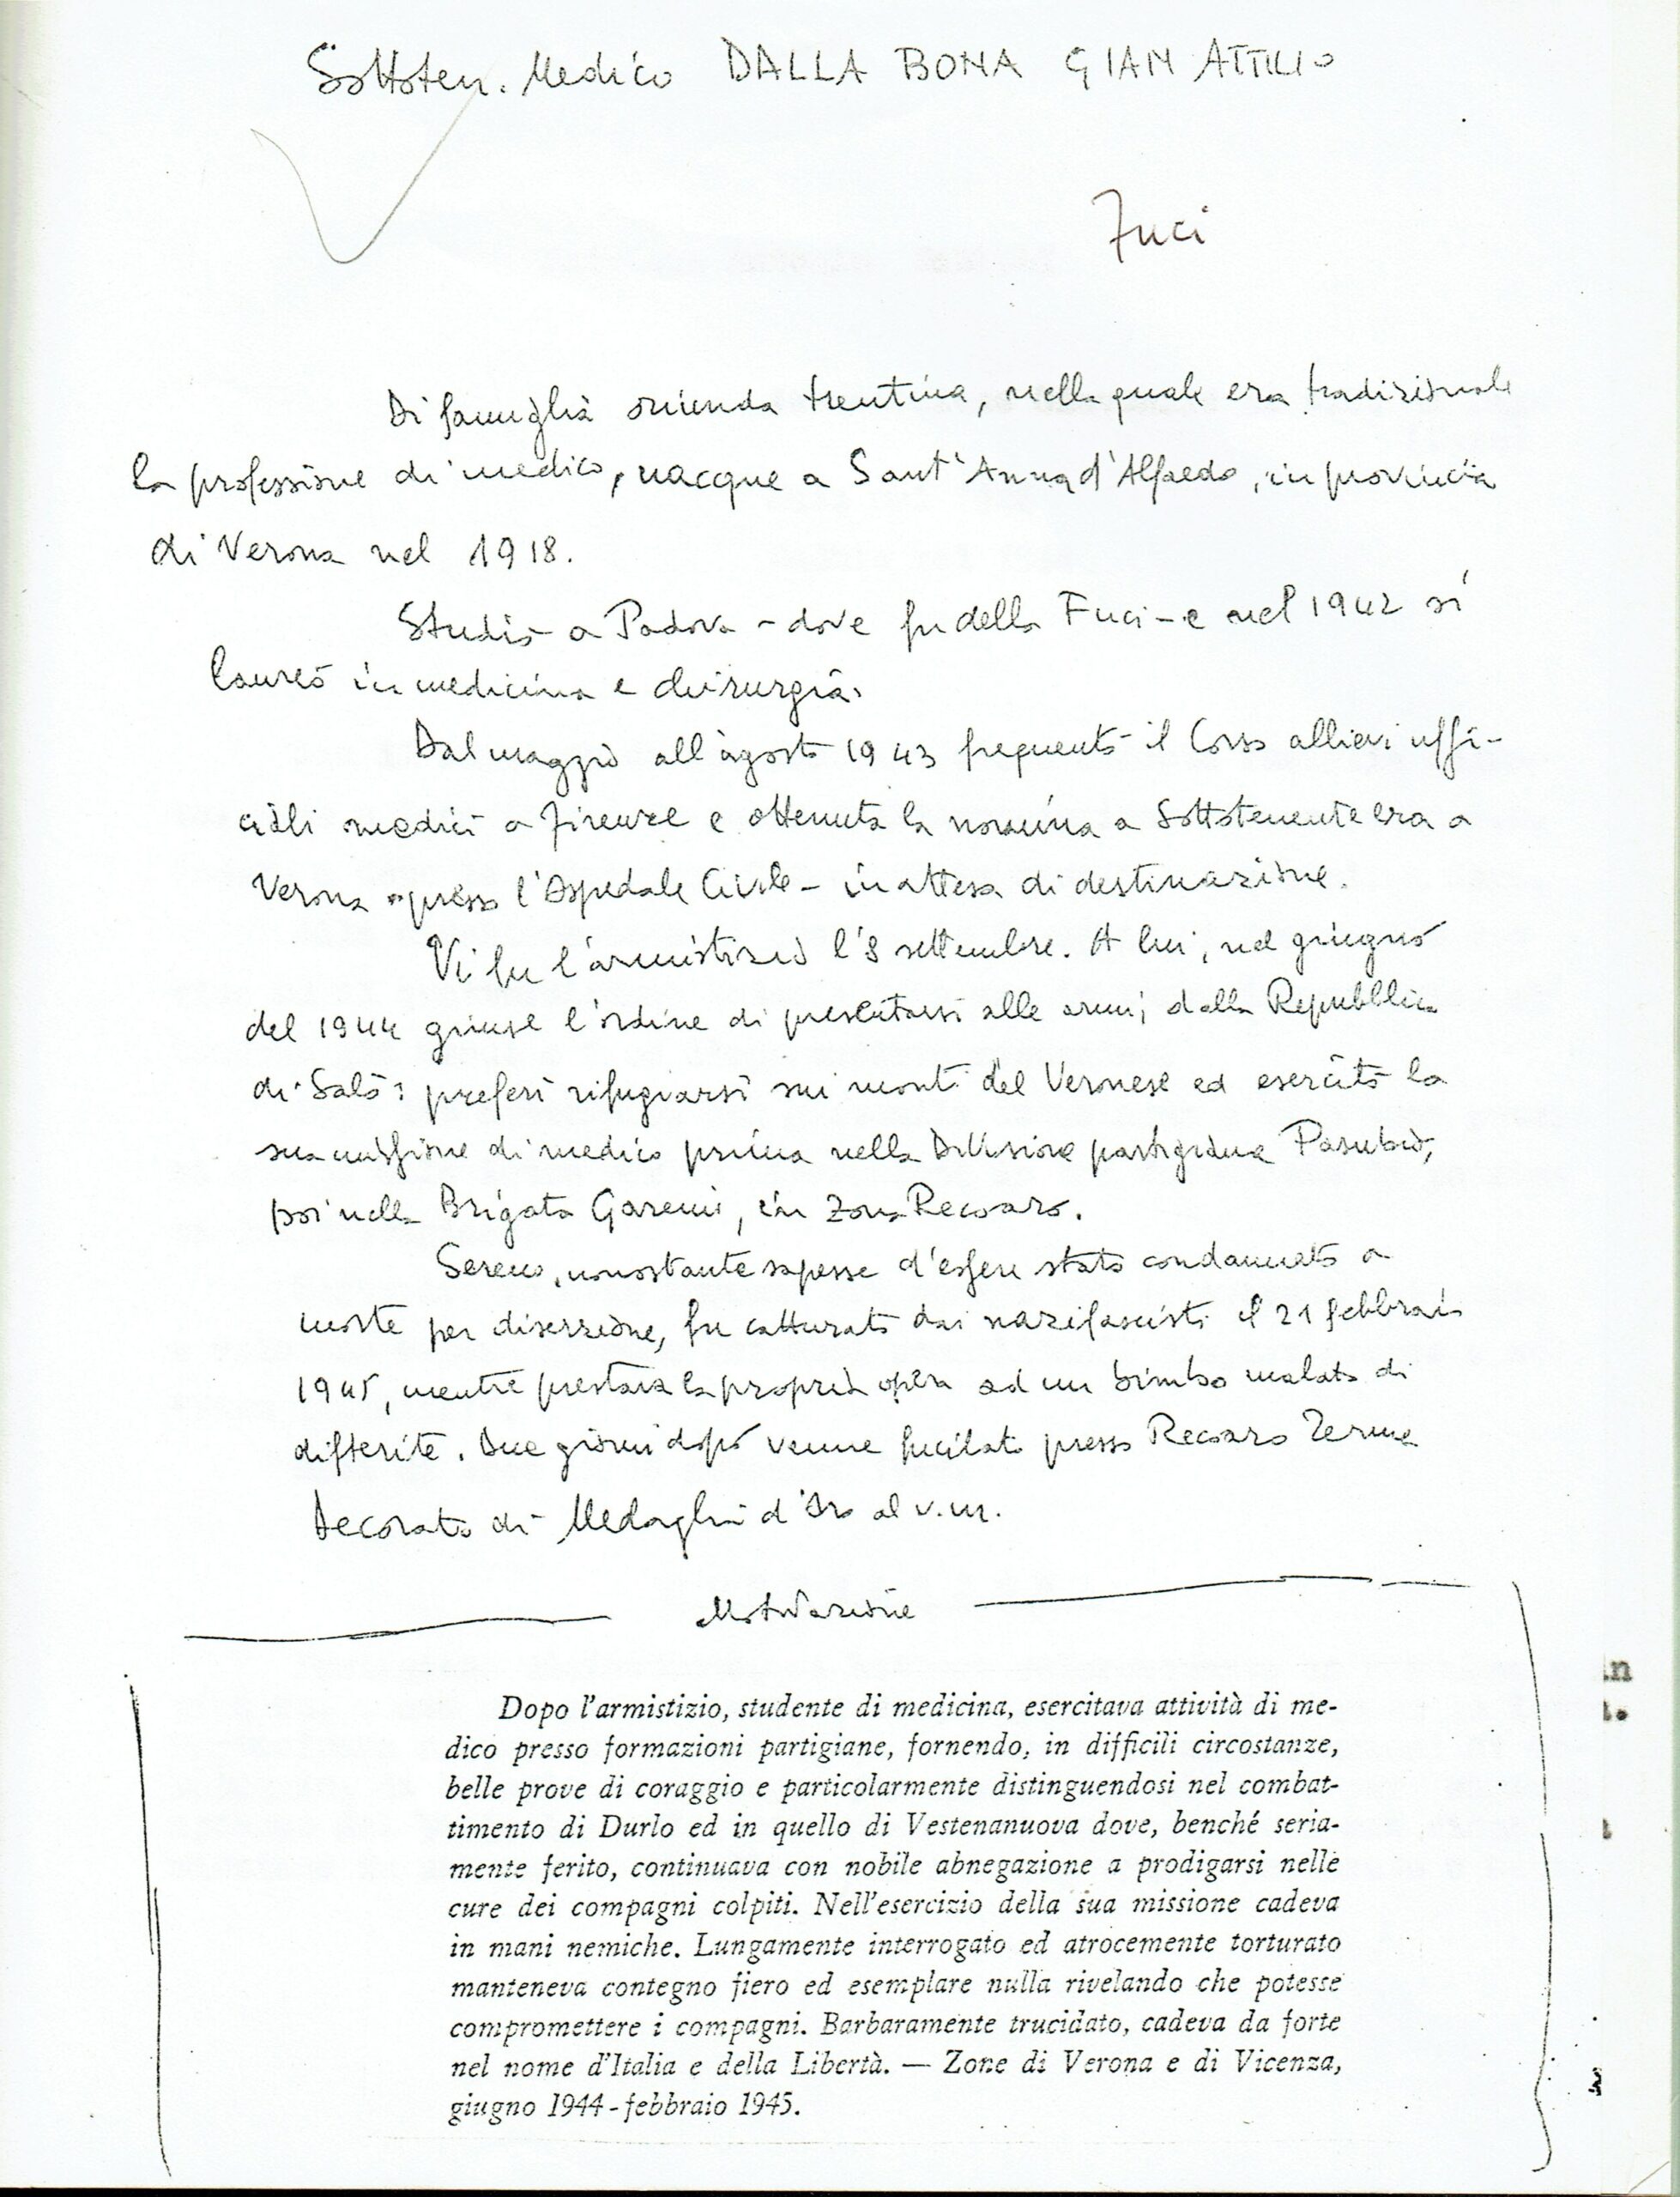 Sottoten. Medico DALLA BONA GIAN ATTILIO
Fuci
Di famiglia oriunda trentina, nella quale era tradizionale
la professione di medico, nacque a Sant'Anna d'Alfaedo, in provincia
di Verona nel 1918.
Studiò a Padova - dove fu della Fuci - e nel 1942 si
laureò in medicina e chirurgia.
Dal maggio all'agosto 1943 frequentò il Corso allievi uffi-
ciali medici a Firenze e ottenuta la nomina a Sottotenente era a
Verona presso l'Ospedale Civile - in attesa di destinazione.
Vi fu l'armistizio l'8 settembre. A lui, nel giugno
del 1944 giunse l'ordine di presentarsi alle armi dalla Repubblica
di Salò: preferì rifugiarsi sui monti del Veronese ed esercitò la
sua missione di medico prima nella Divisione partigiana Pasubio,
poi nella Brigata Garemi, in zona Recoaro.
Sereno, nonostante sapesse d'essere stato condannato a
morte per diserzione, fu catturato dai nazifascisti il 21 febbraio
1945, mentre prestava la propria opera ad un bimbo malato di
difterite. Due giorni dopo venne fucilato presso Recoaro Terme
Decorato di Medaglia d'Oro al v.m.
Motivazione
Dopo l'armistizio, studente di medicina, esercitava attività di me-
dico presso formazioni partigiane, fornendo, in difficili circostanze,
belle prove di coraggio e particolarmente distinguendosi nel combat-
timento di Durlo ed in quello di Vestenanuova dove, benché seria-
mente ferito, continuava con nobile abnegazione a prodigarsi nelle
cure dei compagni colpiti. Nell'esercizio della sua missione cadeva
in mani nemiche. Lungamente interrogato ed atrocemente torturato
manteneva contegno fiero ed esemplare nulla rivelando che potesse
compromettere i compagni. Barbaramente trucidato, cadeva da forte
nel nome d'Italia e della Libertà. — Zone di Verona e di Vicenza,
giugno 1944 - febbraio 1945.